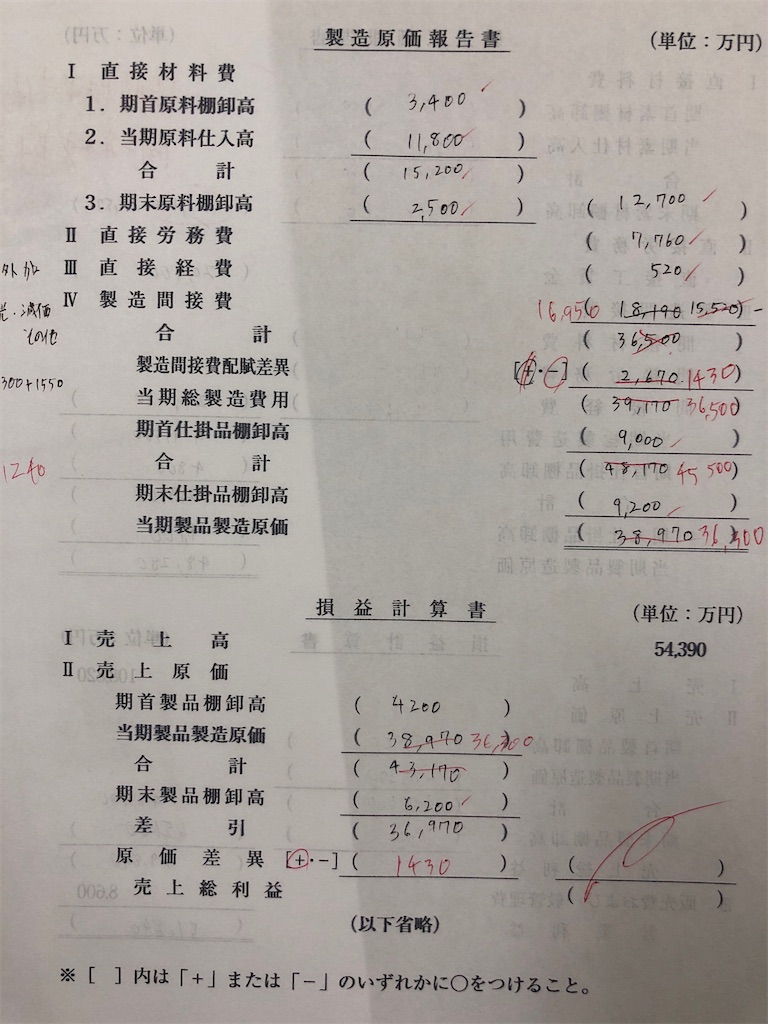 製造原価報告書 (単位：万円)
Ⅰ 直接材料費
1．期首原料棚卸高 ( 3,400 )
2．当期原料仕入高 ( 11,800 )
合計 ( 15,200 )
3．期末原料棚卸高 ( 2,500 ) ( 12,700 )
Ⅱ 直接労務費 ( 7,760 )
外 Ⅲ 直接経費 ( 520 )
Ⅳ 製造間接費 16,950 ( 18,190 15,520 ) -
その他 合計 ( 36,500 )
製造間接費配賦差異 [+・-] ( 2,670 1430 )
300+1550 当期総製造費用 ( 39,170 36,500 )
期首仕掛品棚卸高 ( 9,000 )
1240 合計 ( 48,170 45,500 )
期末仕掛品棚卸高 ( 9,200 )
当期製品製造原価 ( 38,970 36,300 )
損益計算書 (単位：万円)
Ⅰ 売上高 54,390
Ⅱ 売上原価
期首製品棚卸高 ( 4200 )
当期製品製造原価 ( 38,970 36,300 )
合計 ( 43,170 )
期末製品棚卸高 ( 6,200 )
差引 ( 36,970 )
原価差異 [+・-] ( 1430 ) ( )
売上総利益 ( )
(以下省略)
※［ ］内は「+」または「-」のいずれかに○をつけること。